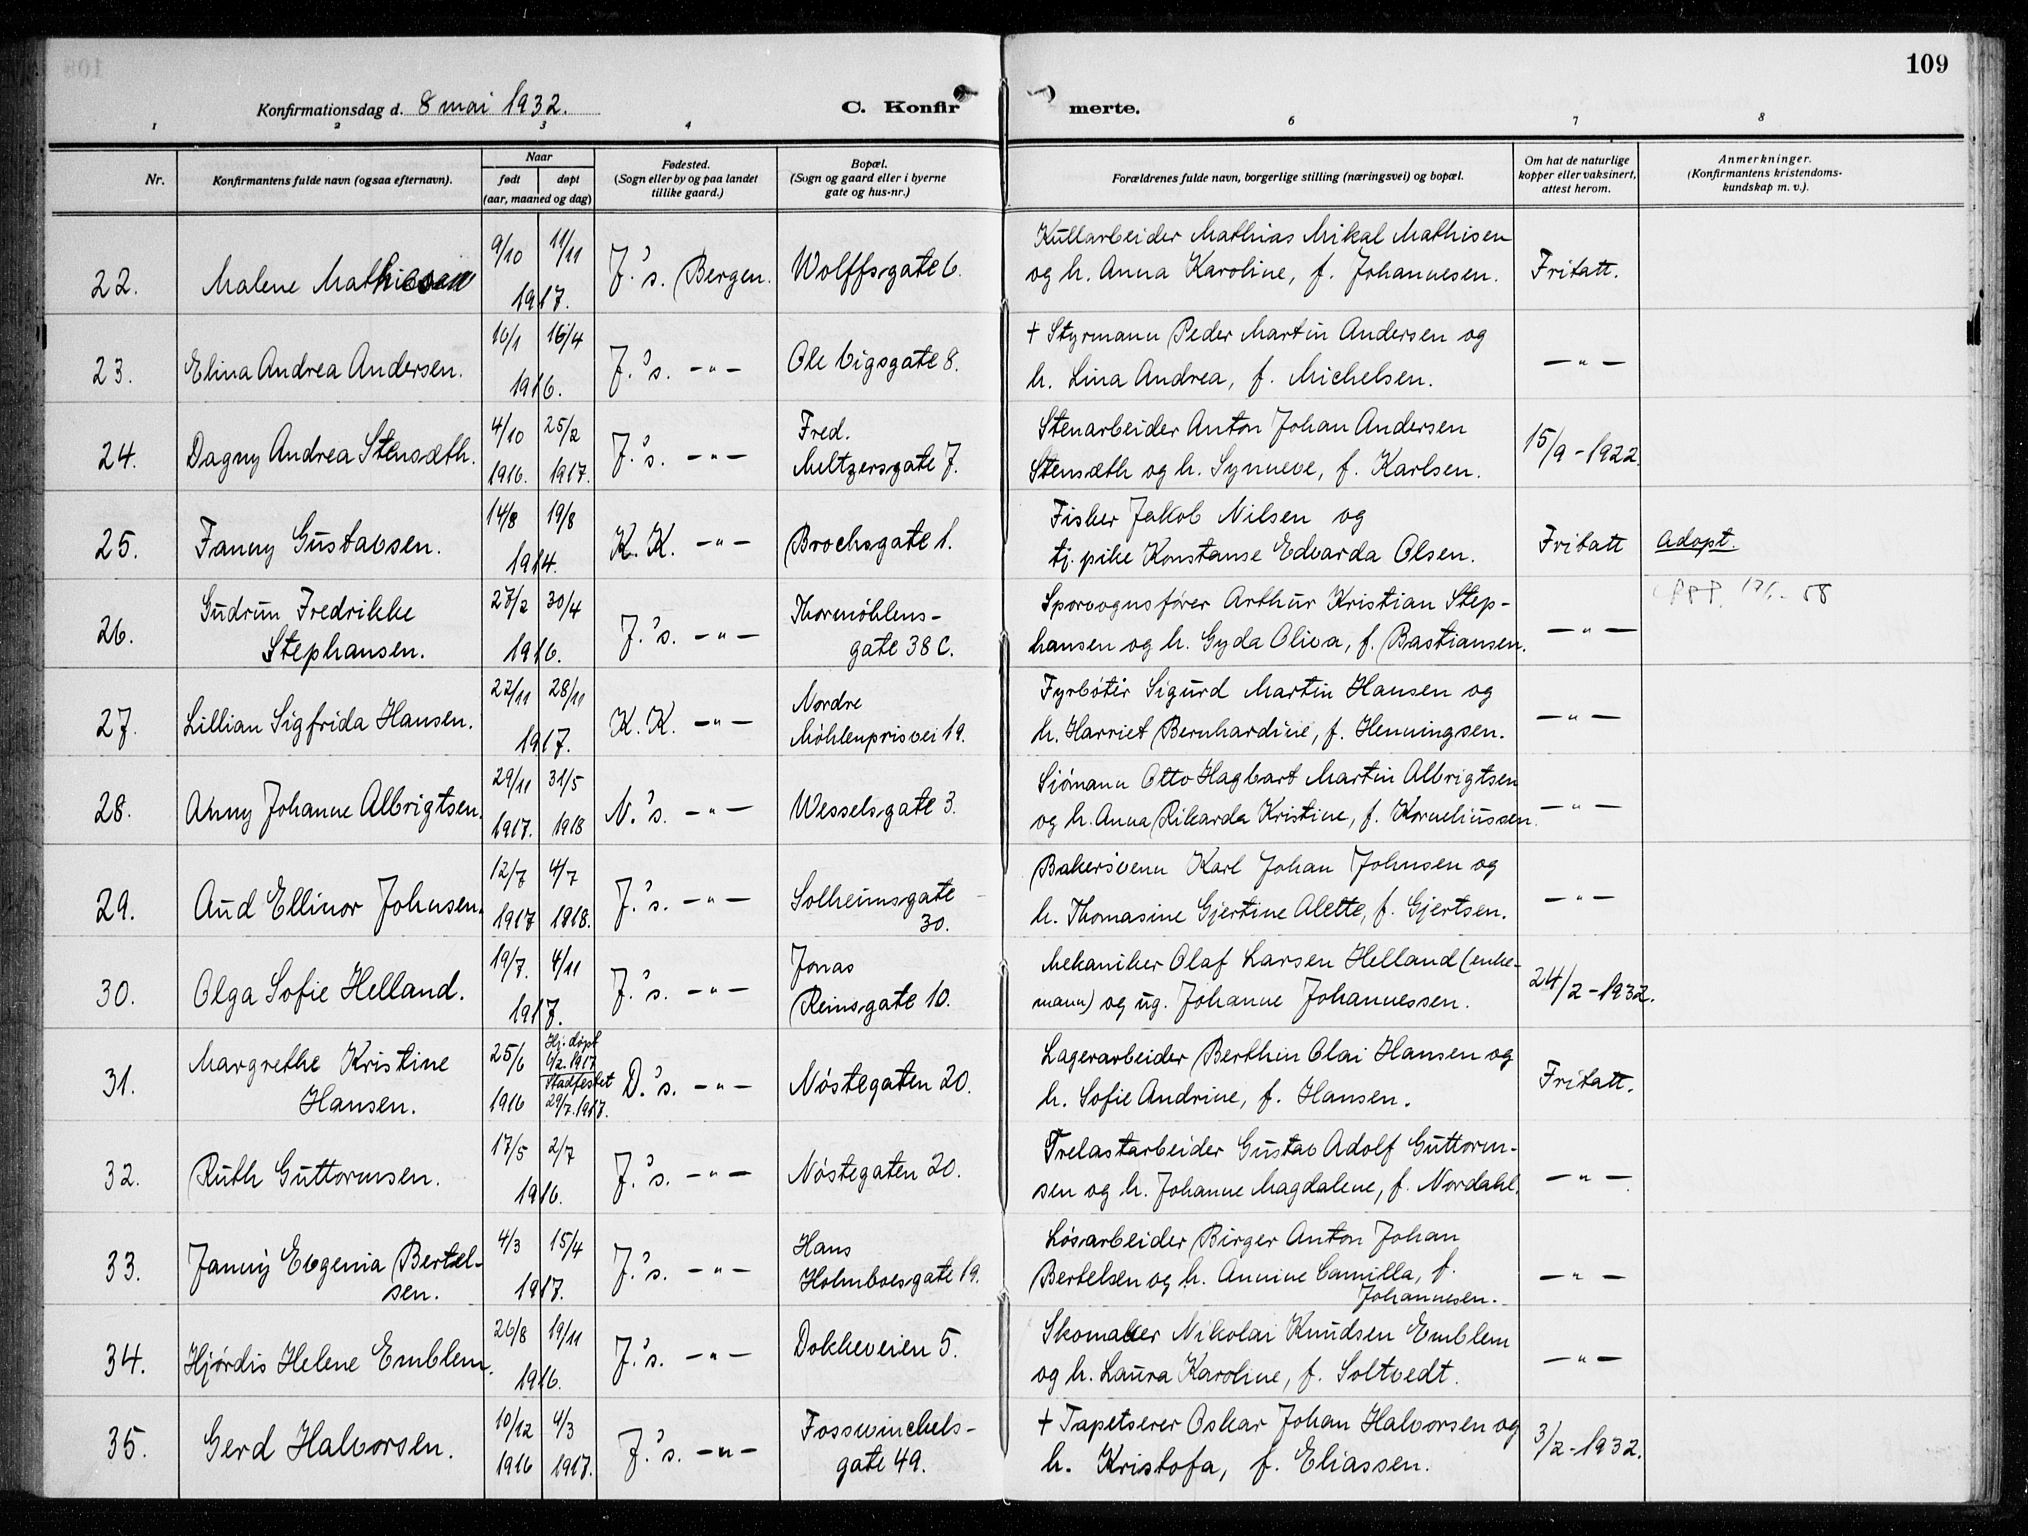 109
Konfirmationsdag d. 8 mai 1932. C. Konfir merte.
1 2 3 4 6 7 8
Nr. Konfirmantens fulde navn (ogsaa efternavn). Naar født døpt (aar, maaned og dag) Fødested. (Sogn eller by og paa landet tillike gaard.) Bopæl. (Sogn og gaard eller i byerne gate og hus-nr.) Forældrenes fulde navn, borgerlige stilling (næringsvei) og bopæl. Om hat de naturlige kopper eller vaksinert, attest herom. Anmerkninger. (Konfirmantens kristendoms- kundskap m. v.).
9/10 11/11 Kullarbeider Mathias Mikal Mathisen
22. Malene Mathiesen 1917. J.'s. Bergen. Wolffsgate 6. og h. Anna Karoline, f. Johannesen. Fritatt.
10/1 16/4 + Styrmann Peder Martin Andersen og
23. Elina Andrea Andersen. 1916. J.'s. —"— Ole Vigsgate 8. h. Lina Andrea, f. Michelsen. —"—
4/10 25/2 Fred. Stenarbeider Anton Johan Andersen
24. Dagny Andrea Stensæth. 1916. 1917. J.'s. —"— Meltzersgate 7. Stensæth og h. Synneve, f. Karlsen. 15/9-1922.
14/8 19/8 Fisker Jakob Nilsen og
25. Fanny Gustavsen. 1914. K.K. —"— Brochsgate 1. tj. pike Konstanse Edvarda Olsen. Fritatt Adopt.
Gudrun Fredrikke 27/2 30/4 Thormøhlens- Sporvognsfører Arthur Kristian Step-
26. Stephansen. 1916. J.'s. —"— gate 38 C. hansen og h. Gyda Oliva, f. Bastiansen. —"—
22/11 28/11 Nordre Fyrbøter Sigurd Martin Hansen og
27. Lillian Sigfrida Hansen. 1917. K.K. —"— Møhlenprisvei 19. h. Harriet Bernhardine, f. Henningsen. —"—
29/11 31/5 Sjømann Otto Hagbart Martin Albrigtsen
28. Anny Johanne Albrigtsen. 1917. 1918 N.'s. —"— Wesselsgate 3. og h. Anna Rikarda Kristine, f. Korneliussen. —"—
12/7 4/7 Solheimsgate Bakersvenn Karl Johan Johnsen og
29. Aud Ellinor Johnsen. 1917 1918. J.'s. —"— 30. h. Thomasine Gjertine Alette, f. Gjertsen. —"—
19/7. 4/11 Jonas Mekaniker Olaf Larsen Helland (enke-
30. Olga Sofie Helland. 1917. J.'s. —"— Reinsgate 10. mann) og ug. Johanne Johannessen. 24/2-1932.
Margrethe Kristine 25/6 Hj. døpt 6/2.1917 Lagerarbeider Berthin Olai Hansen og
31. Hansen. 1916 Stadfestet 29/7.1917. D.'s. —"— Nøstegaten 20. h. Sofie Andrine, f. Hansen. Fritatt.
17/5 2/7 Trelastarbeider Gustav Adolf Guttorm-
32. Ruth Guttormsen. 1916. J.'s. —"— Nøstegaten 20. sen og h. Johanne Magdalene, f. Nordahl. —"—
Janny Evgenia Bertel- 4/3 15/4 Hans Løsarbeider Birger Anton Johan
33. sen. 1917. J.'s. —"— Holmboesgate 19. Bertelsen og h. Annine Camilla, f. —"—
Johannesen.
26/8 19/11 Skomaker Nikolai Knudsen Emblem
34. Hjørdis Helene Emblem. 1916. J.'s. —"— Dokkeveien 5. og h. Laura Karoline, f. Soltvedt. —"—
10/12 4/3 Fosswinckels- + Tapetserer Oskar Johan Halvorsen og
35. Gerd Halvorsen. 1916 1917. J.'s. —"— gate 49. h. Kristofa, f. Eliassen. 3/2-1932.